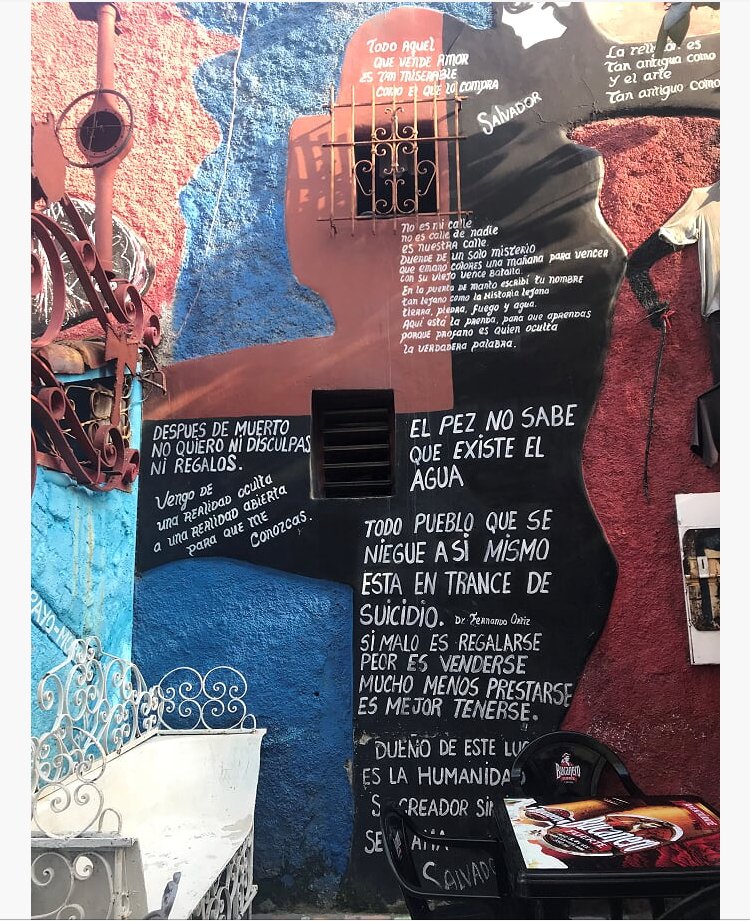 TODO AQUEL
QUE VENDE AMOR
ES TAN MISERABLE
COMO EL QUE LO COMPRA
SALVADOR
LA
ES
TAN ANTIGUA COMO
Y EL ARTE
TAN ANTIGUO COMO
NO ES MI CALLE
NO ES CALLE DE NADIE
ES NUESTRA CALLE.
DUENDE DE UN SOLO MISTERIO
QUE EMANO COLORES UNA MAÑANA PARA VENCER
CON SU VIEJO VENCE BATALLA.
EN LA PUERTA DE MANTO ESCRIBÍ TU NOMBRE
TAN LEJANO COMO LA HISTORIA LEJANA
TIERRA, PIEDRA, FUEGO Y AGUA.
AQUI ESTÁ LA PRENDA, PARA QUE APRENDAS
PORQUE PROFANO ES QUIEN OCULTA
LA VERDADERA PALABRA.
DESPUES DE MUERTO
NO QUIERO NI DISCULPAS
NI REGALOS.
VENGO DE
UNA REALIDAD OCULTA
A UNA REALIDAD ABIERTA
PARA QUE ME
CONOZCAS.
EL PEZ NO SABE
QUE EXISTE EL
AGUA
TODO PUEBLO QUE SE
NIEGUE A SÍ MISMO
ESTA EN TRANCE DE
SUICIDIO. Dr. Fernando Ortiz
SI MALO ES REGALARSE
PEOR ES VENDERSE
MUCHO MENOS PRESTARSE
ES MEJOR TENERSE.
DUEÑO DE ESTE
ES LA HUMANIDAD
CREADOR
SALVADO
Bucanero
Bucanero